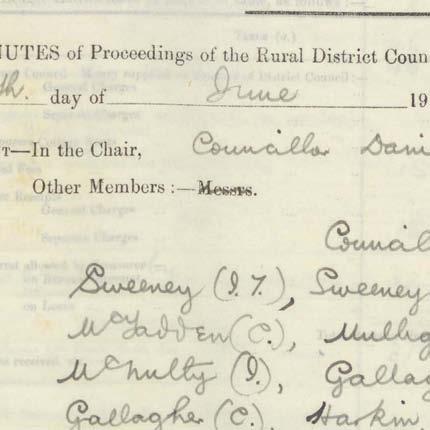 NUTES of Proceedings of the Rural District Coun
th. day of June 19
T—In the Chair, Councillor Dani
Other Members :—Messrs.
Council
Sweeney (J. F.), Sweeney
McFadden (C.), Mullig
McNulty (J.), Gallag
Gallagher (C.), Harkin